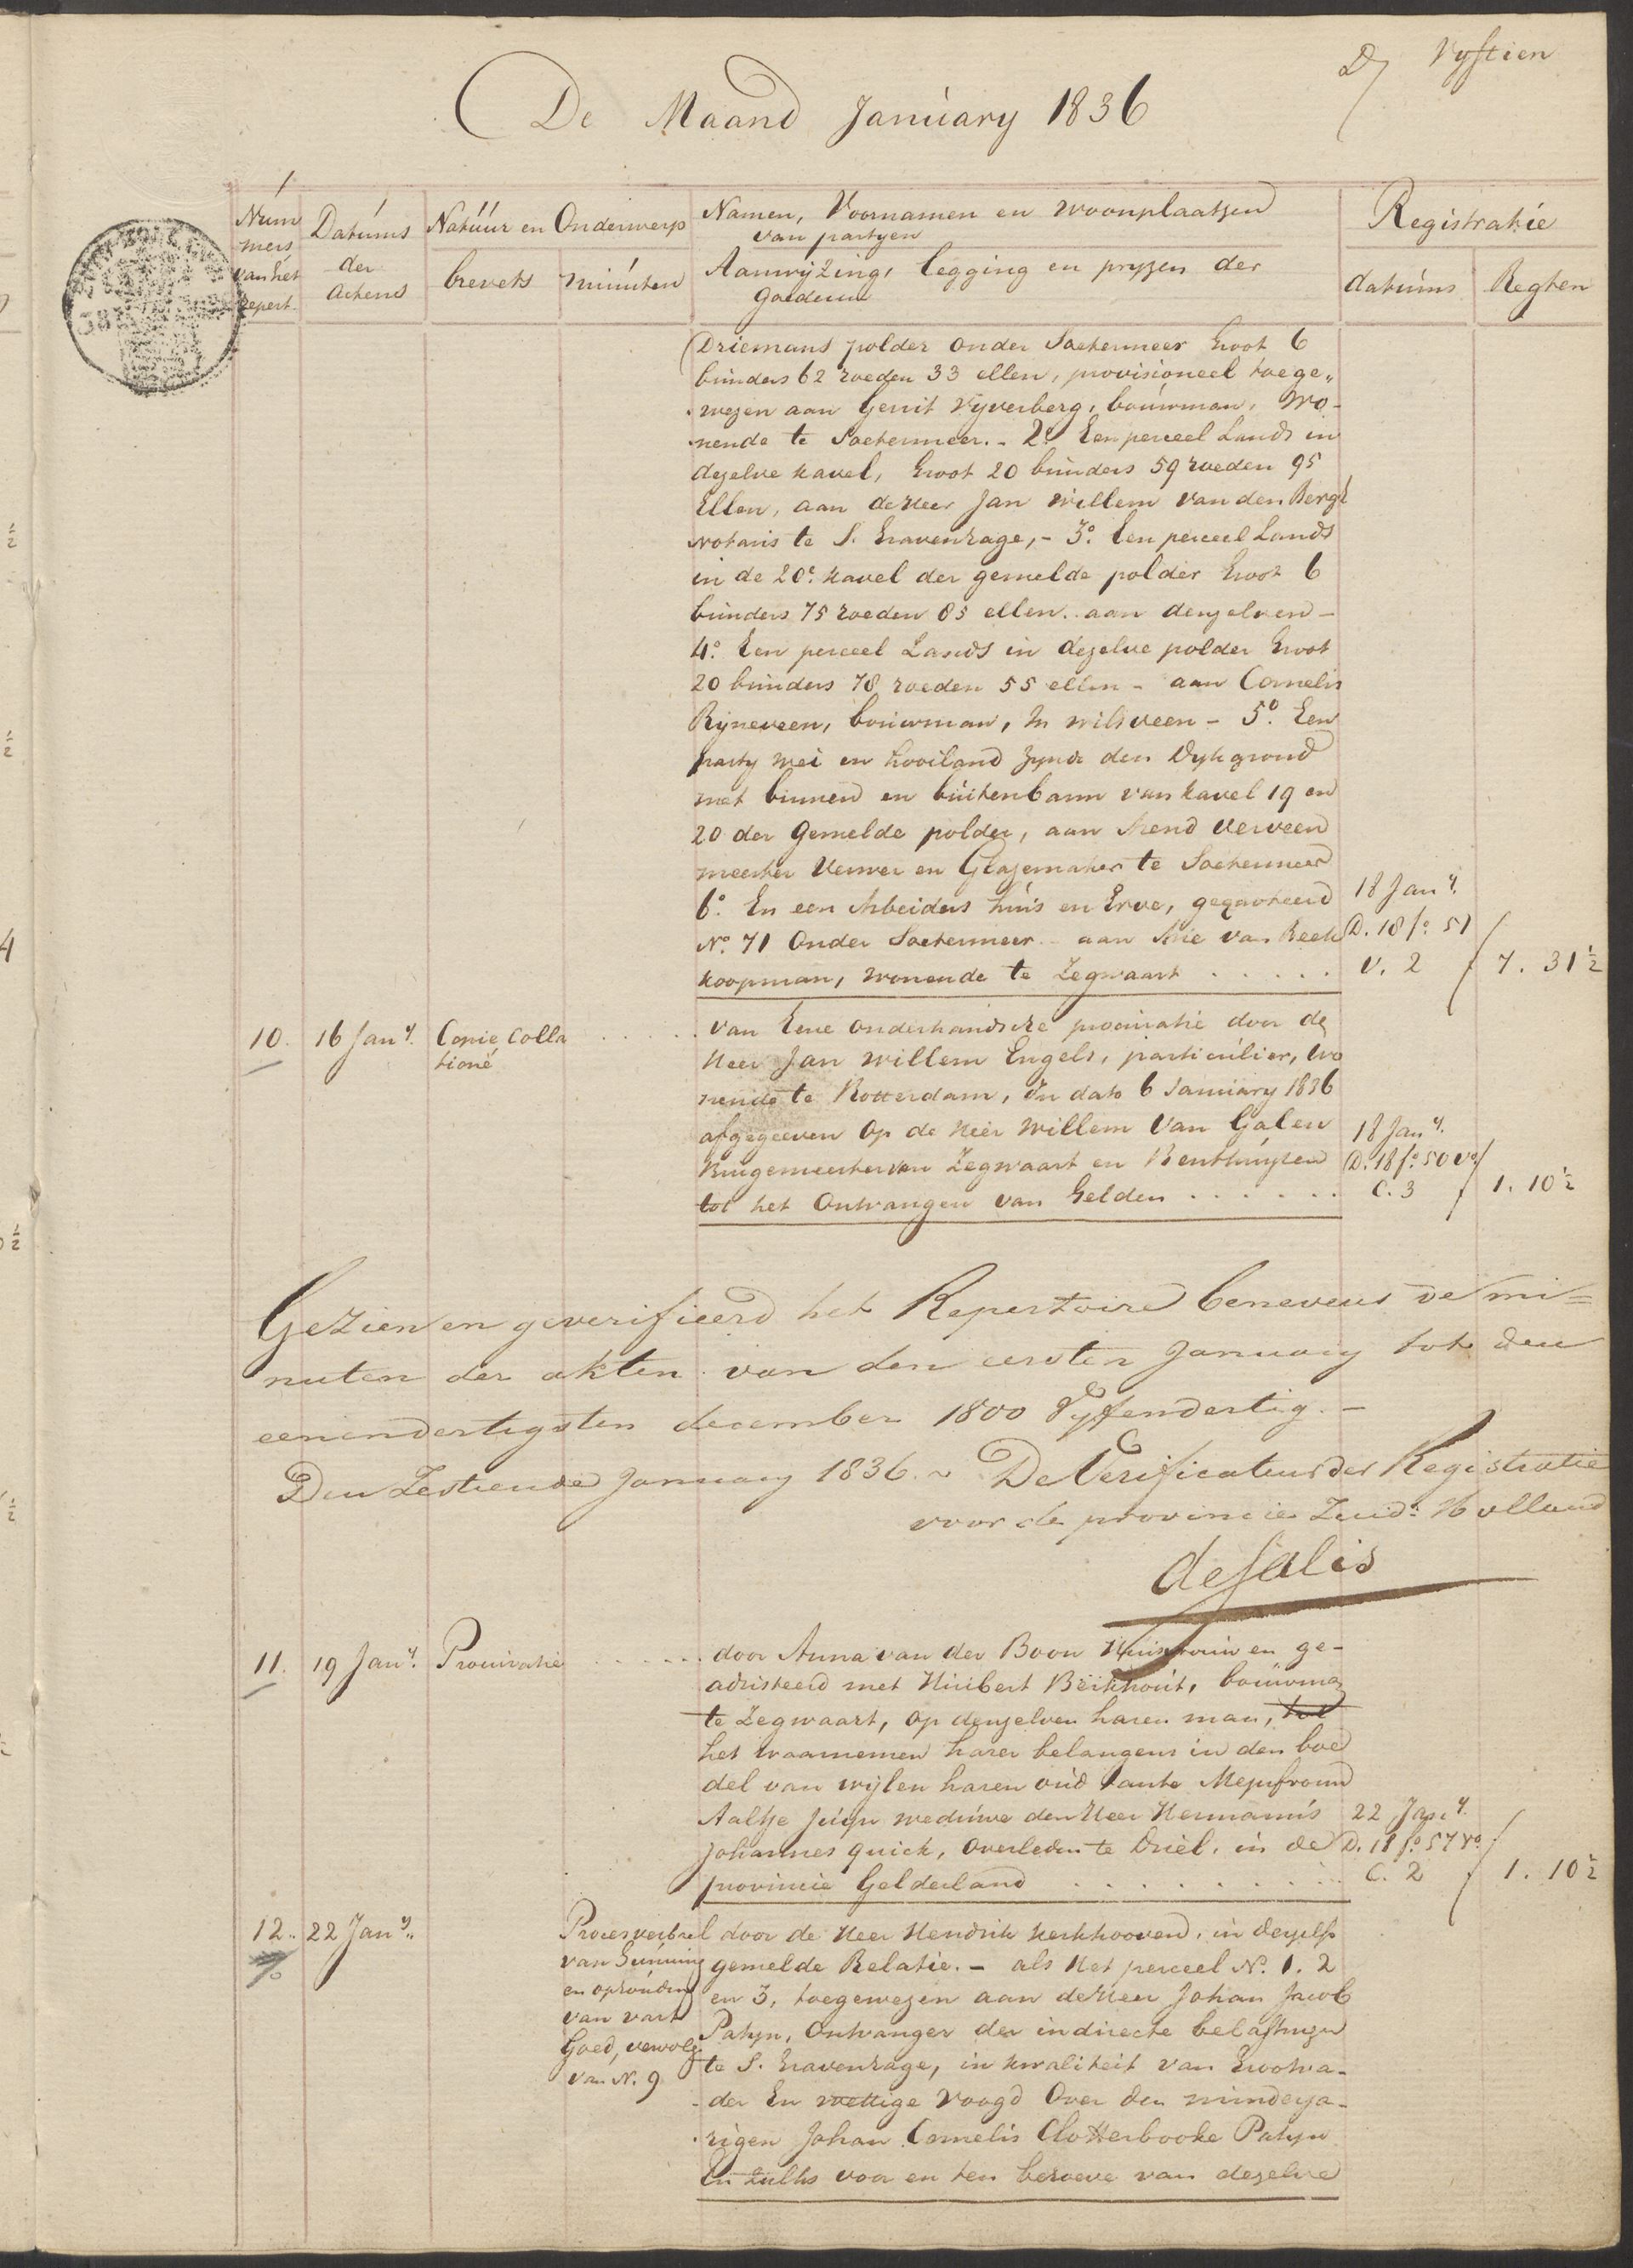 Vyftien
De Maand January 1836
Num
mers
van het
repert.
Datums
der
Actens
Natuur en Onderwerp
brevets
minuten
Namen, Voornamen en woonplaatsen
van partyen
Aanwyzing, legging en pryzen der
Goederen
Registratie
datums
Regten
Driemans polder onder Soetermeer Groot 6
bunders 62 roeden 33 ellen, provisioneel toege„
wezen aan Gerrit Vyverberg, bouwman, wo-
nende te Soetermeer. - 2o. Een perceel Lands in
dezelve kavel, Groot 20 bunders 59 roeden 95
Ellen, aan de Heer Jan Willem van den Bergh
notaris te S. Gravenhage, - 3o. Een perceel Lands
in de 20e. kavel der gemelde polder Groot 6
bunders 75 roeden 85 ellen. aan denzelven -
4o. Een perceel Lands in dezelve polder Groot
20 bunders 78 roeden 55 ellen - aan Cornelis
Rijneveen, bouwman, In wilsveen - 5o. Een
party wei en hooiland zynde den Dykgrond
met binnen en buitenbarm van kavel 19 en
20 der Gemelde polder, aan Arend Verveen
meester Verwer en Glazemaker te Soetermeer
6o. En een Arbeiders huis en Erve, gequoteerd
No. 71 Onder Soetermeer - aan Arie van Reek
koopman, wonende te Zegwaart . . . . .
18 Jany.
D. 18 fo. 51
V. 2
7. 31½
10.
16 Jany.
Copie Colla
tioné
van Eene Onderhandsche procuratie door de
Heer Jan Willem Engels, particulier, wo
nende te Rotterdam, In dato 6 January 1836
afgegeeven Op de Heer Willem van Galen
Burgemeester van Zegwaart en Benthuyzen
tot het Ontvangen van Gelden . . . . . .
18 Jany.
D. 18 fo. 50 vo.
C. 3
1. 10½
Gezien en geverifieerd het Repertoire benevens de mi=
nuten der akten van den eersten January tot den
eenendertigsten december 1800 Vyfendertig. -
Den Zestiende January 1836. - De Verificateur der Registratie
voor de provincie Zuid: Holland
de Salis
11.
19 Jany.
Procuratie
door Anna van der Boon Huisvrouw en ge-
adsisteerd met Huibert Berkhout, bouwman
te Zegwaart, op denzelven haren man, tot
het waarnemen harer belangens in den boe
del van wijlen haren oud tante Mejufvrouw
Aaltje Juijn weduwe den Heer Hermanus
Johannes Quick, Overleden te Driel, in de
provincie Gelderland . . . . . . . . . .
22 Jany.
D. 18 fo. 57 vo.
C. 2
1. 10½
12.
22 Jany.
Procesverbael
van Gunning
en ophouding
van vast
Goed, vervolg
van N. 9
door de Heer Hendrik Kerkhooven, in derzelfs
gemelde Relatie. - als Het perceel No. 1. 2
en 3, toegewezen aan de Heer Johan Jacob
Patyn, Ontvanger der indirecte belastingen
te S. Gravenhage, in kwaliteit van Grootva-
der En wettige voogd Over den minderja-
rigen Johan Cornelis Clotterbooke Patyn
En zulks voor en ten behoeve van dezelve